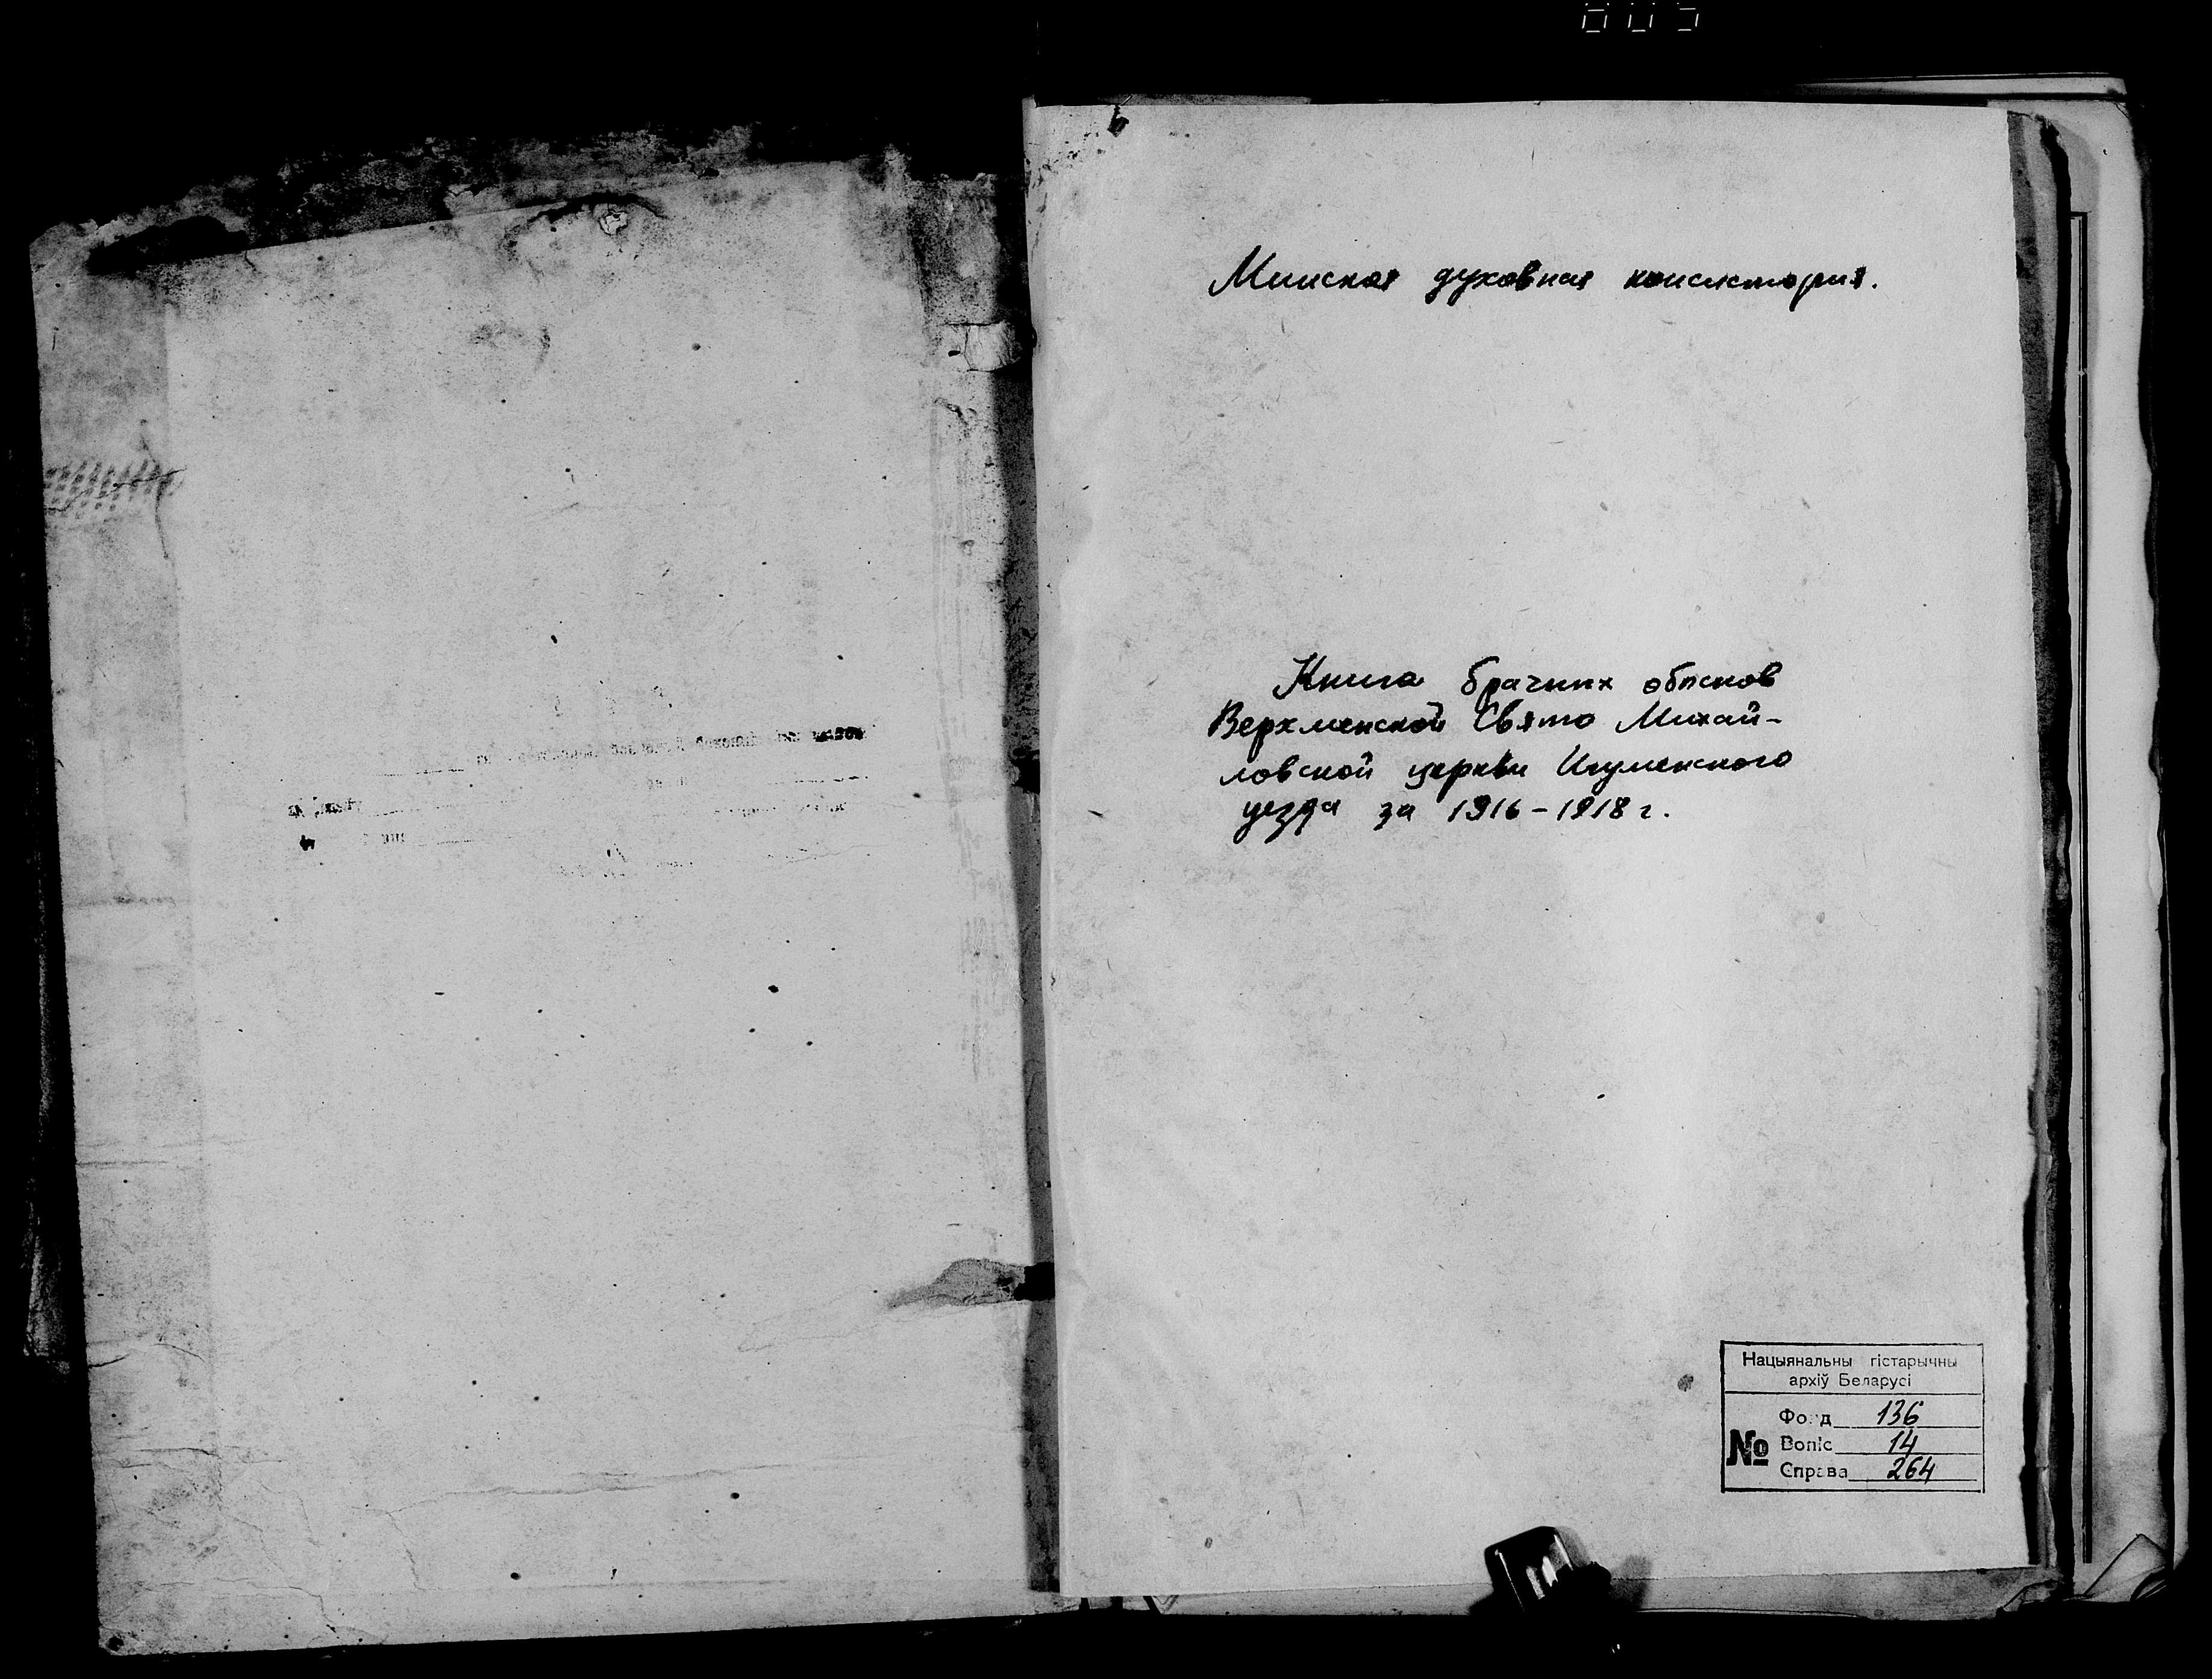 Минская духовная консистория.
Книга брачных обысков
Верхменской Свято Михай-
ловской церкви Игуменского
уезда за 1916-1918 г.
Нацыянальны гістарычны
архіў Беларусі
Фонд 136
№ Вопіс 14
Справа 264